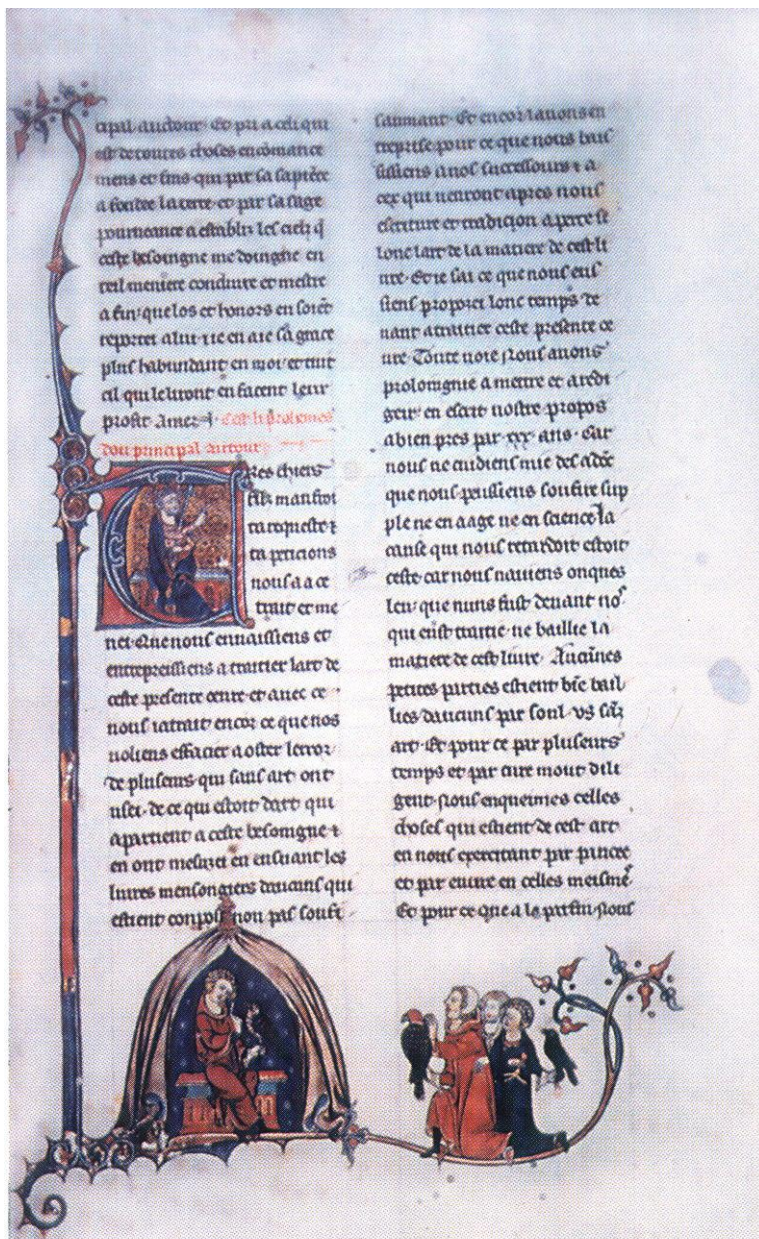 cipal auctour. Et pri a celi qui
est de toutes choses encōmance
mens et fins qui par sa sapiēce
a fondee la terre et par sa sage
pourueance a establiz les cielz q̄
ceste besoingne me doinghe en
teil meniere conduire et mestre
a fin que los et honors en soiēt
reportei a lui et ie en aie sa grace
plus habundant en moi et tuit
cil qui le liront en facent leur
profit Amez. C'est li prologues
dou principal auctour
Tres chiers
filz manfroi
ta requeste ⁊
ta peticions
nous a a ce
trait et me
net. Que nous ennaissiens et
entrepreissiens a traitier lart de
ceste presente oeure et auec ce
nous iatrait encor ce que nos
uoliens effacier a oster lerror
de pluseurs qui sans art ont
usei. de ce qui estoit dart qui
apartient a ceste besoingne ⁊
en ont mesurei en ensuant les
liures mensongiers daucuns qui
estient compos non pas souffi
saumant. Et encor lauons en
treprise pour ce que nous bais
sissiens a nos successours ⁊ a
cex qui uenront apres nous
escriture et tradicion aperte se
lonc lart de la matiere de cest li
ure. Et ie sai ce que nous eus
siens proposei lonc temps de
uant a traitier ceste presente oe
ure. Toute uoie nous auons
prolongnie a mettre et a redi
geir en escrit nostre propos
a bien pres par .xxx. ans. Car
nous ne cuidiens mie des adōc
que nous peussiens soufire sup
ple ne en aage ne en science la
cause qui nous retardoit estoit
ceste car nous nauiens onques
leu que nuns fust deuant no⁹
qui eust traitie ne baillie la
matiere de cest liure. Aucūnes
petites parties estient biē bail
lies daucuns par soul us sāz
art. Et pour ce par pluseurs
temps et par cure mout dili
gent nous enqueimes celles
choses qui estient de cest art
en nous exercitant par pancee
et par euure en celles meismes
Et pour ce que a la parfin nous